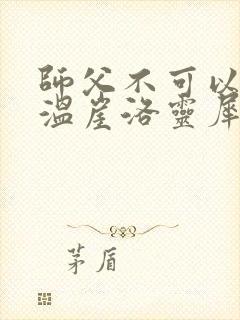 師父不可以
溫崖洛靈犀
茅盾